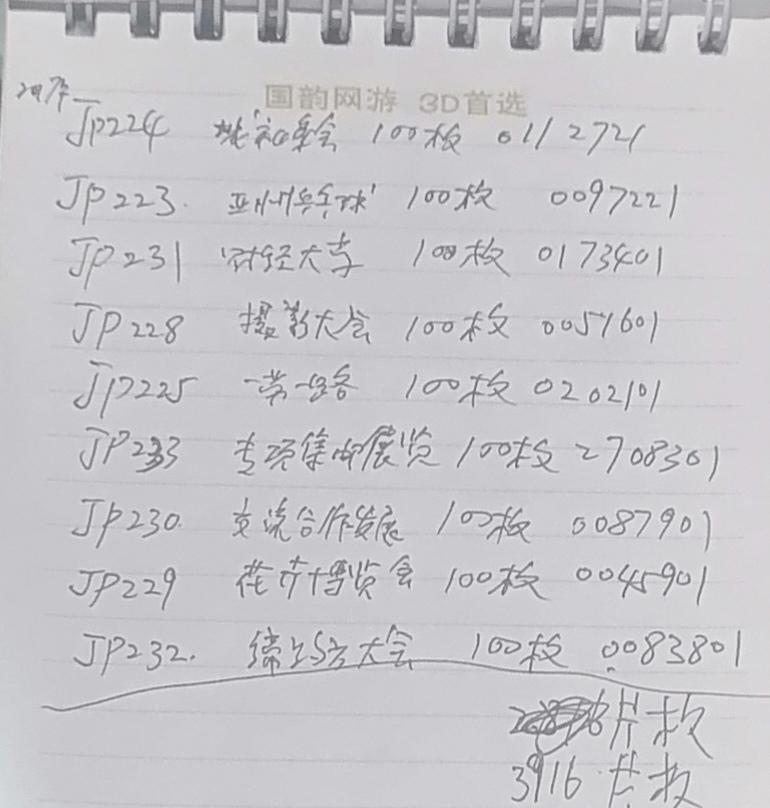 国韵网游 3D首选
JP224 100枚 0112721
JP223. 亚州乒乓球 100枚 0097221
JP231 财经大学 100枚 0173401
JP228 摄影大会 100枚 0051601
JP225 一带一路 100枚 0202101
JP233 专项集邮展览 100枚 2708301
JP230. 交流合作发展 100枚 0087901
JP229 花卉博览会 100枚 0045901
JP232. 缔约方大会 100枚 0083801
枚
3916 枚